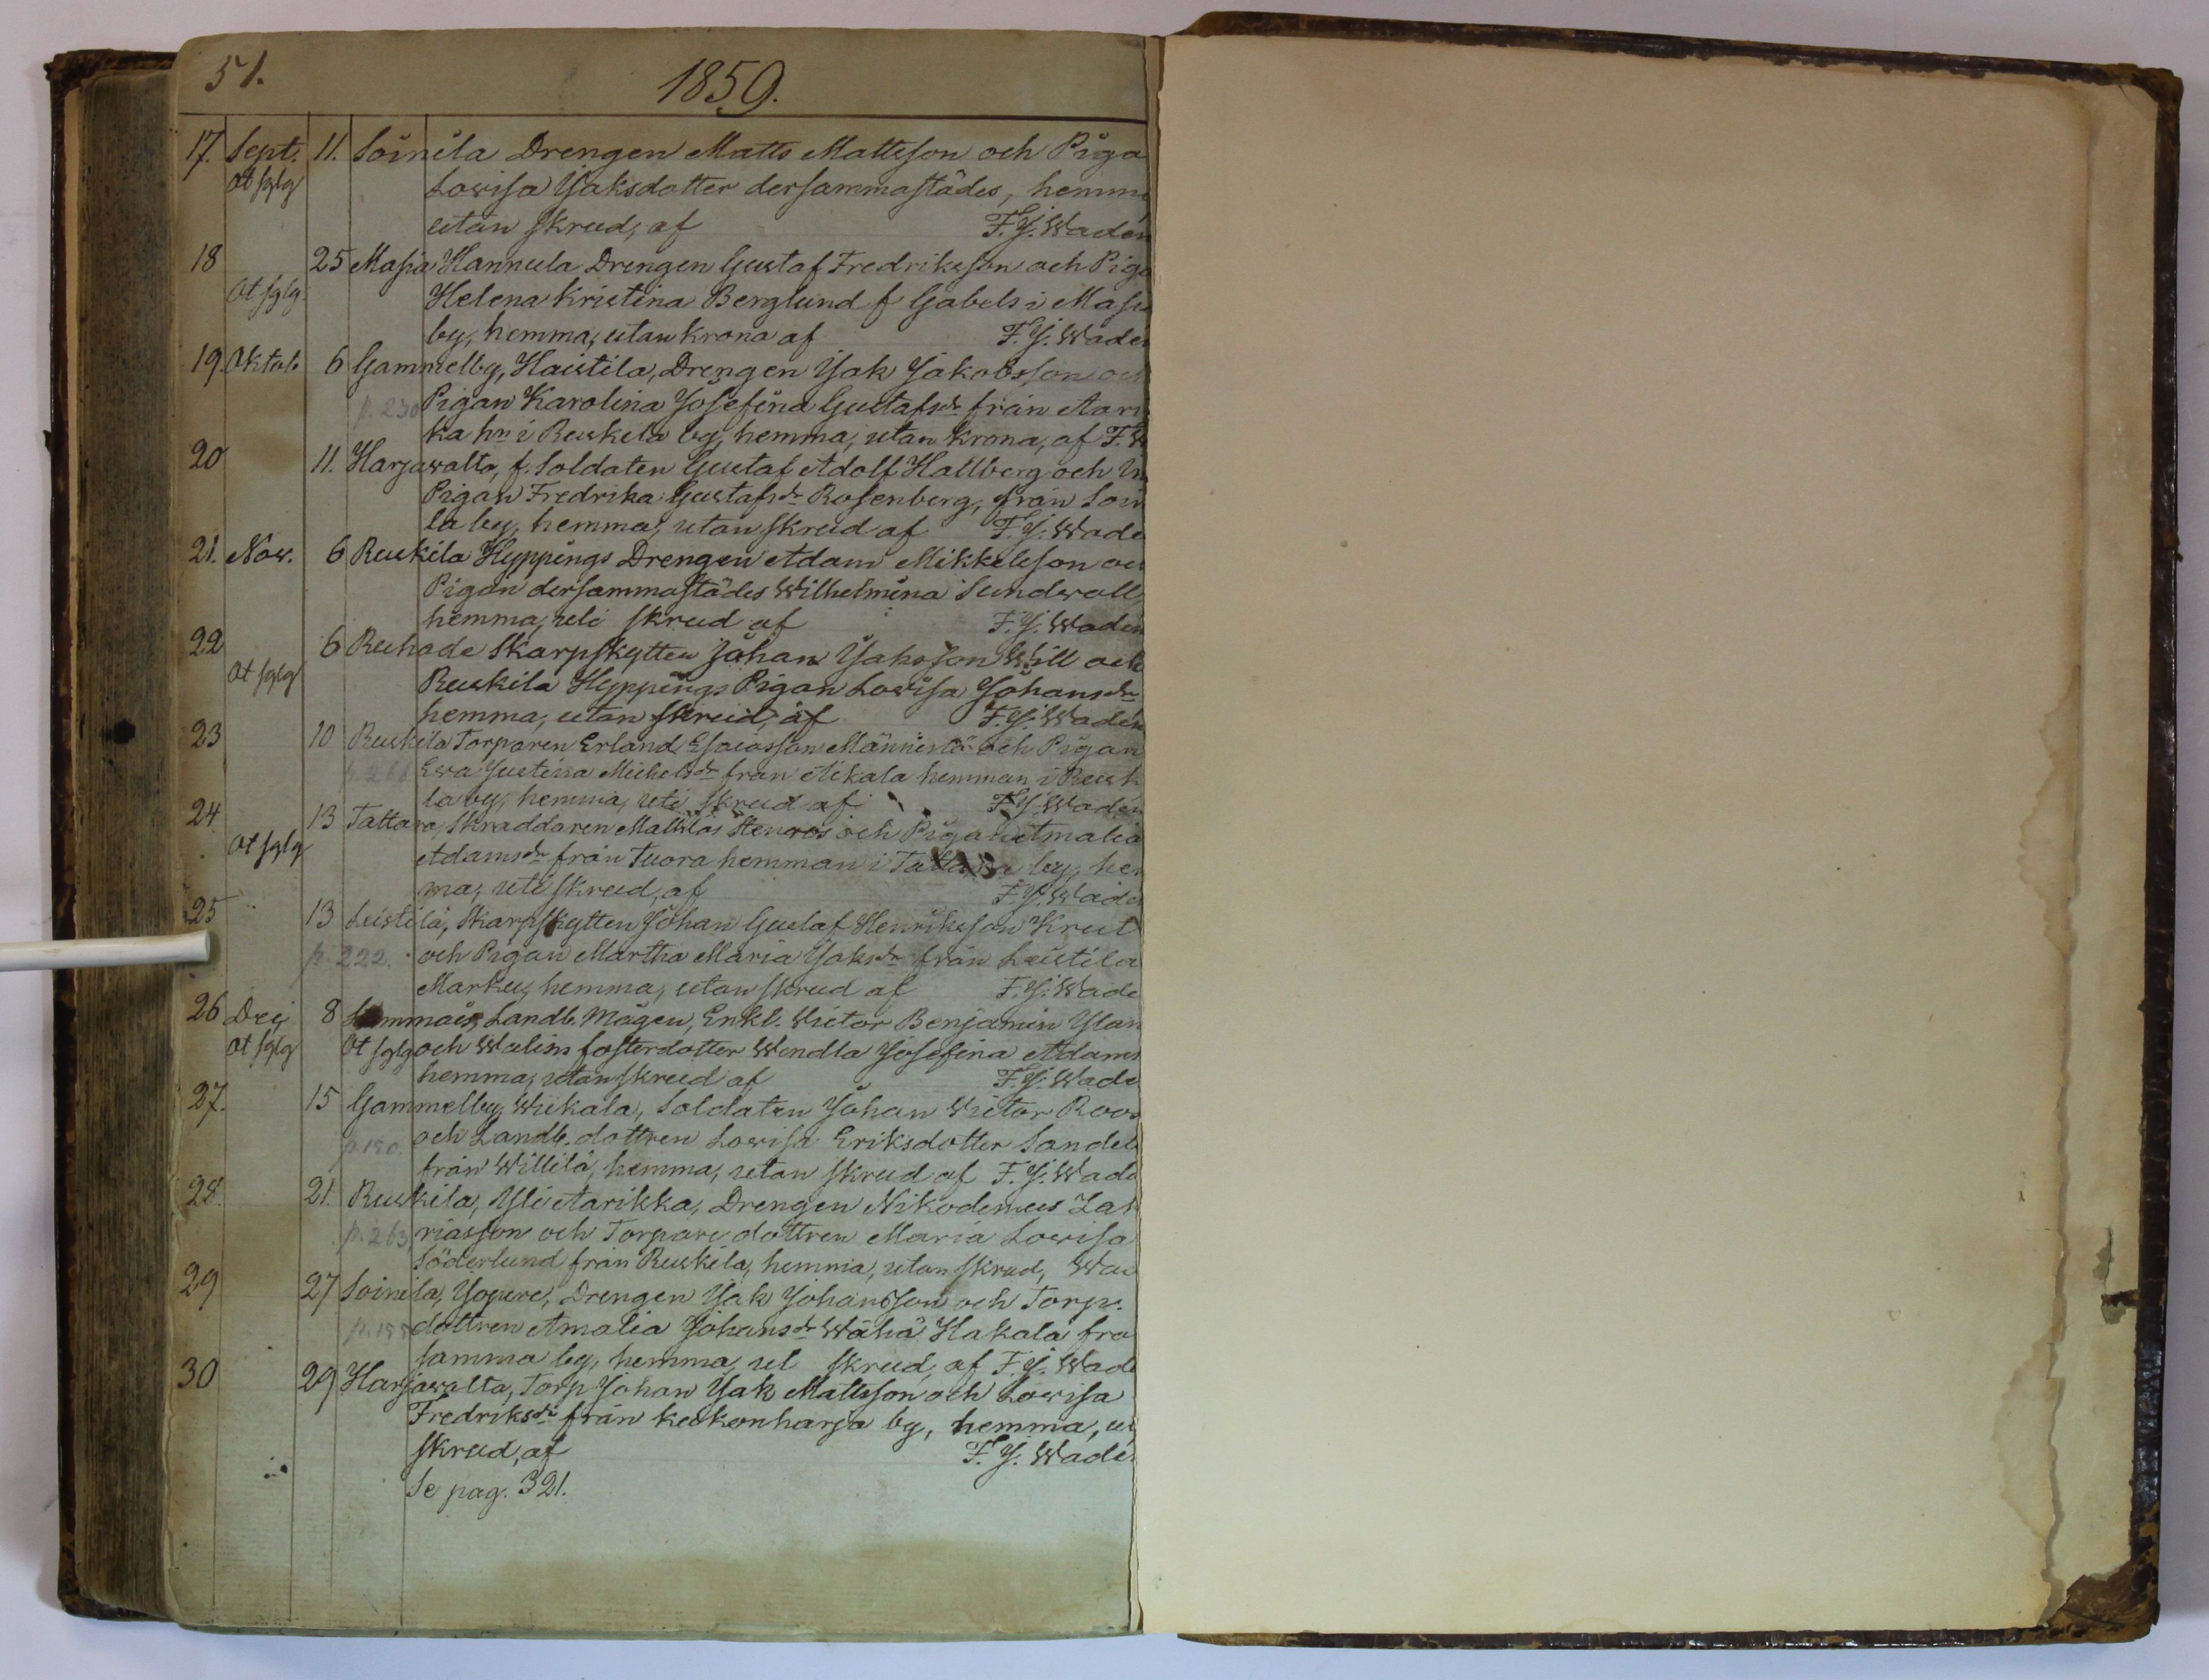 51.
1859.
17. Sept. 11. Soinila Drengen Matts Mattsson och Piga
Lovisa Isaksdotter dersammastädes, hemma
utan skrud, af F. J. Waden
18 25 Masia Hannula Drengen Gustaf Fredriksson och Piga
Helena Kristina Berglund f Gabels i Masia
by, hemma, utan krona af F. J. Waden
19. Oktob 6 Gammelby, Haistila, Drengen Isak Jakobsson och
p. 230 Pigan Karolina Josefina Gustafsdr från Aarik
ka hn i Ruskila by, hemma, utan krona, af F. W
20 11. Harjawalta, f. Soldaten Gustaf Adolf Hallberg och
Pigan Fredrika Gustafsdr Rosenberg, från Soini
la by, hemma, utan skrud af F. J. Wade
21. Nov. 6 Ruskila Hyppings Drengen Adam Mikkelsson och
Pigan dersammastädes Wilhelmina Sundvall,
hemma, uti skrud af F. J. Waden
22 6 Ruhade Skarpskytten Johan Isaksson Will och
Ruskila Hyppings Pigan Lovisa Johansdr
hemma, utan skrud, af F. J. Waden
23 10 Ruskila Torparen Erland Esaiasson Männistö och Pigan
Eva Justina Michelsdr från Aikala hemman i Ruski
la by, hemma, uti skrud af F. J. Waden
24 13 Tattara, Skräddaren Mathias Stenroos och Pigan Amalia
Adamsdr från Tuora hemman i Tattara by, hem
ma, uti skrud, af F. J. Wade
25 13 Leistilä, Skarpskytten Johan Gustaf Henriksson Krut
p. 222. och Pigan Martha Maria Isaksdr från Leistilä
Markus, hemma, utan skrud af F. J. Wade
26 Dec 8 Lammais, Landb. Mågen, Enkl. Victor Benjamin
och Walins fosterdotter Wendla Josefina Adams
hemma, utan skrud af F. J. Wade
27. 15 Gammelby, Wiikala, Soldaten Johan Victor Roos
och Landb. dottren Lovisa Eriksdotter Sandel
från Willilä, hemma, utan skrud af F. J. Wade
28. 21. Ruskila, Yli Aarikka, Drengen Nikodemus Zak
p. 263, riasson och Torpare dottren Maria Lovisa
Söderlund från Ruskila, hemma, utan skrud, Wad
29 27 Soinila, Yopere, Drengen Isak Johansson och Torp.
dottren Amalia Johansdr Wähä Hakala fra
samma by, hemma, ut skrud, af F. J. Wade
30 29 Harjawalta, Torp Johan Isak Mattsson och Lovisa
Fredriksdr från Keskonharja by, hemma, ut
skrud, af F. J. Wade
Se pag. 321.